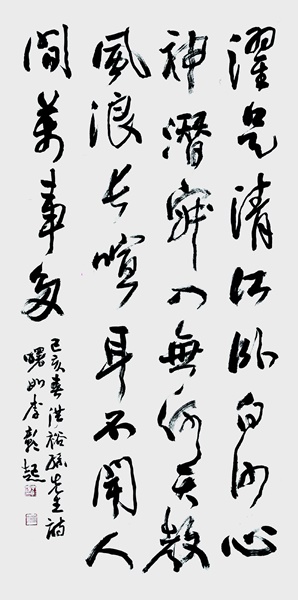 濯足清江臥白沙心
神潛寂入無何天教
風浪長喧耳不聞人
間萬事多
己亥春洪裕孫先生詩
曙如李彰